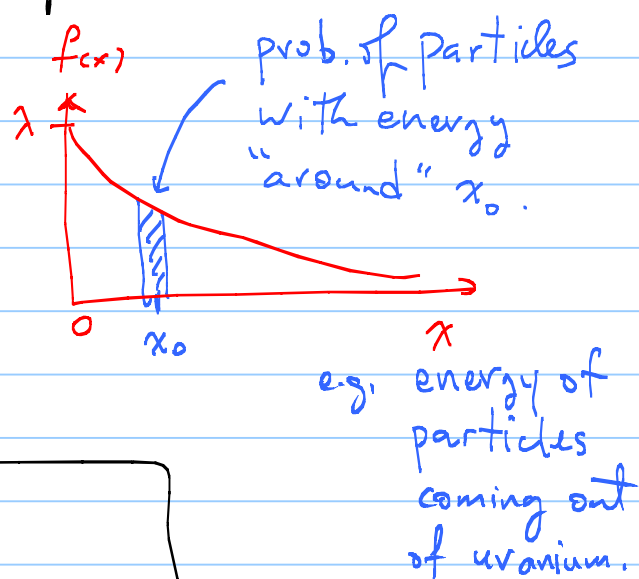 f(x)
prob. of particles
with energy
"around" x₀.
λ
0
x₀
x
e.g. energy of
particles
coming out
of uranium.